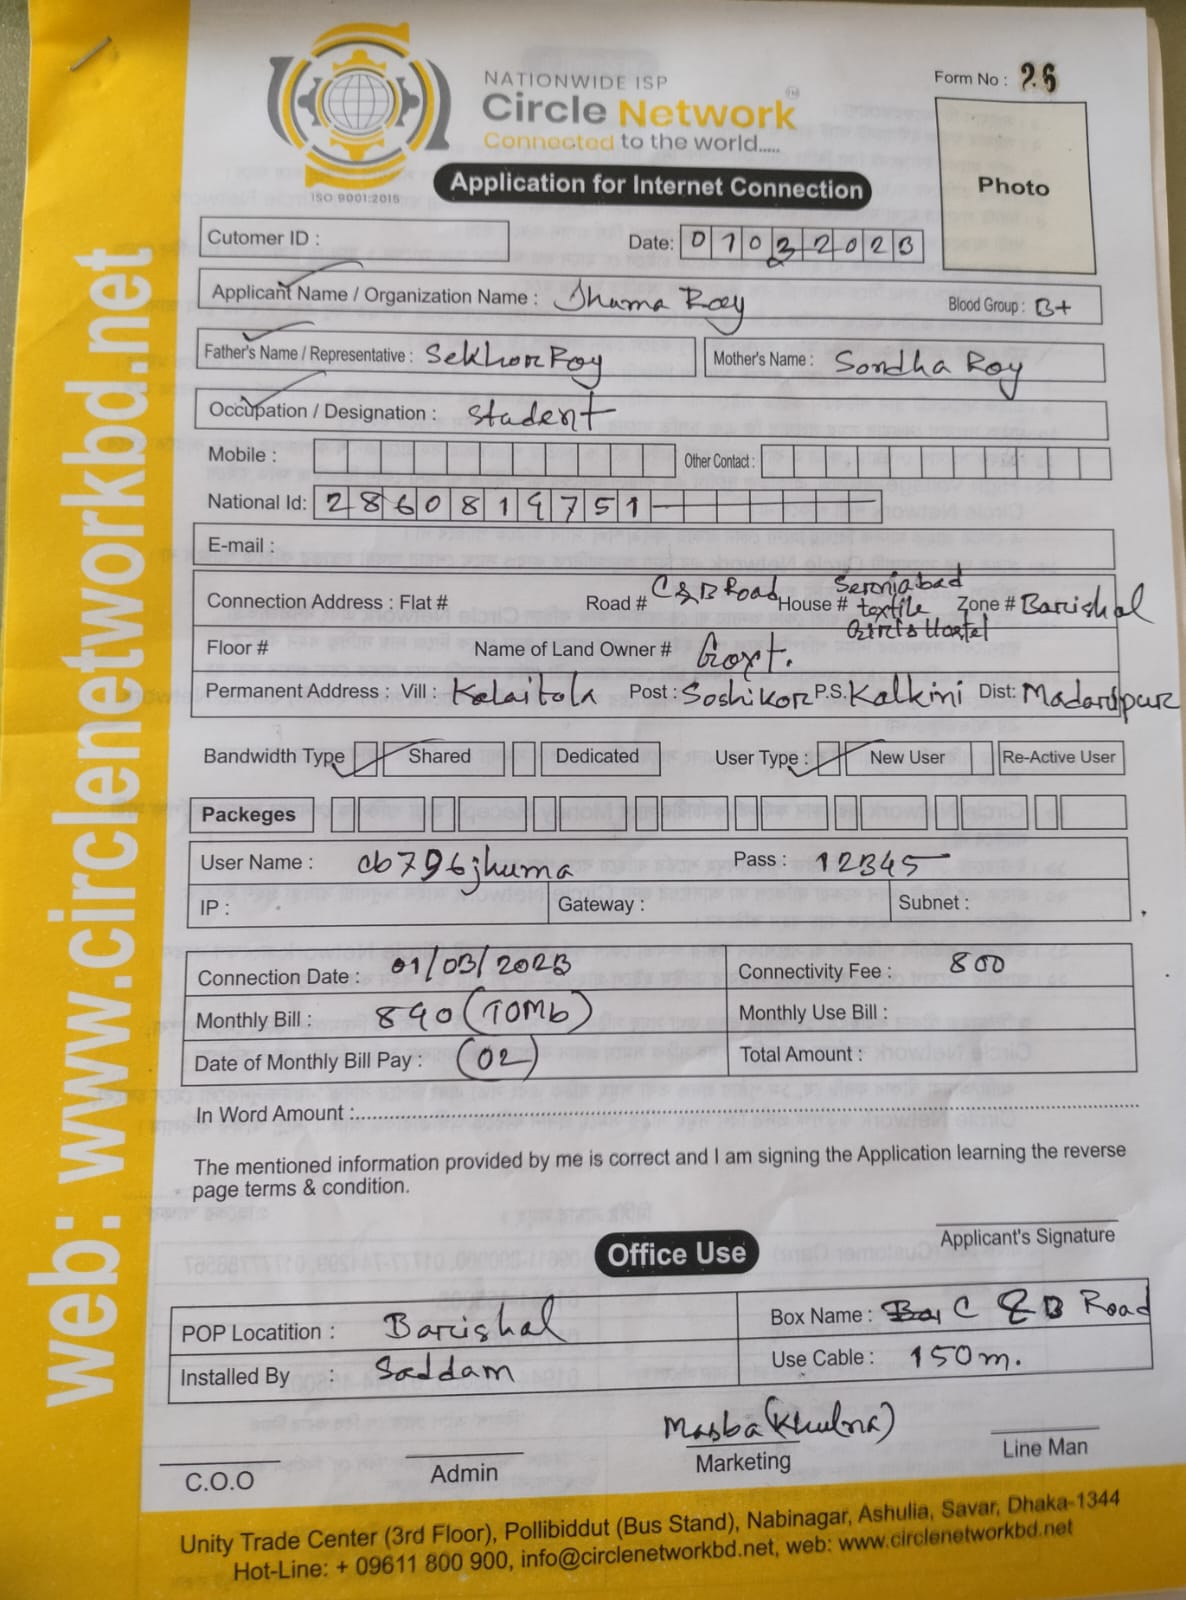 NATIONWIDE ISP
Circle Network
Connected to the world.....
ISO 9001:2015
Form No : 26
Photo
Application for Internet Connection
web: www.circlenetworkbd.net
Cutomer ID :
Date: 01032023
Applicant Name / Organization Name : Jhuma Roy Blood Group : B+
Father's Name / Representative : Sekhor Roy Mother's Name : Sondha Roy
Occupation / Designation : Student
Mobile : Other Contact :
National Id: 2860819751
E-mail :
Connection Address : Flat # Road # C&B Road House # Serniabad textile Girls Hostel Zone # Barishal
Floor # Name of Land Owner # Govt.
Permanent Address : Vill : Kalaitola Post : Soshikor P.S. Kalkini Dist: Madaripur
Bandwidth Type Shared Dedicated User Type : New User Re-Active User
Packeges
User Name : cb796jhuma Pass : 12345
IP : Gateway : Subnet :
Connection Date : 01/03/2023 Connectivity Fee : 800
Monthly Bill : 890 (10Mb) Monthly Use Bill :
Date of Monthly Bill Pay : (02) Total Amount :
In Word Amount :
The mentioned information provided by me is correct and I am signing the Application learning the reverse
page terms & condition.
Applicant's Signature
Office Use
POP Locatition : Barishal Box Name : C & B Road
Installed By : Saddam Use Cable : 150m.
Masba (Khulna)
C.O.O Admin Marketing Line Man
Unity Trade Center (3rd Floor), Pollibiddut (Bus Stand), Nabinagar, Ashulia, Savar, Dhaka-1344
Hot-Line: + 09611 800 900, info@circlenetworkbd.net, web: www.circlenetworkbd.net